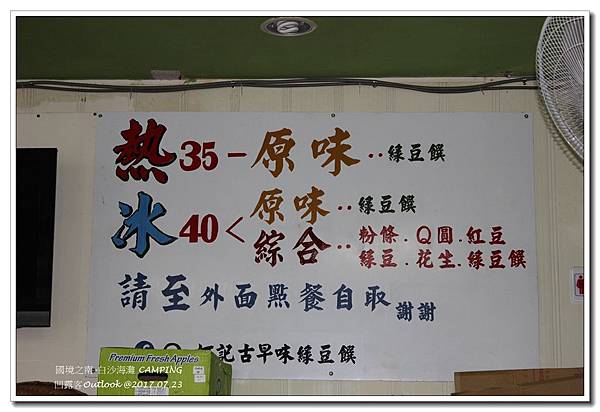 熱35-原味..綠豆饌
冰40<原味..綠豆饌
綜合..粉條.Q圓.紅豆
綠豆.花生.綠豆饌
請至外面點餐自取謝謝
記古早味綠豆饌
Premium Fresh Apples
國境之南 白沙海灘 CAMPING
凹露客Outlook @2017.07.23